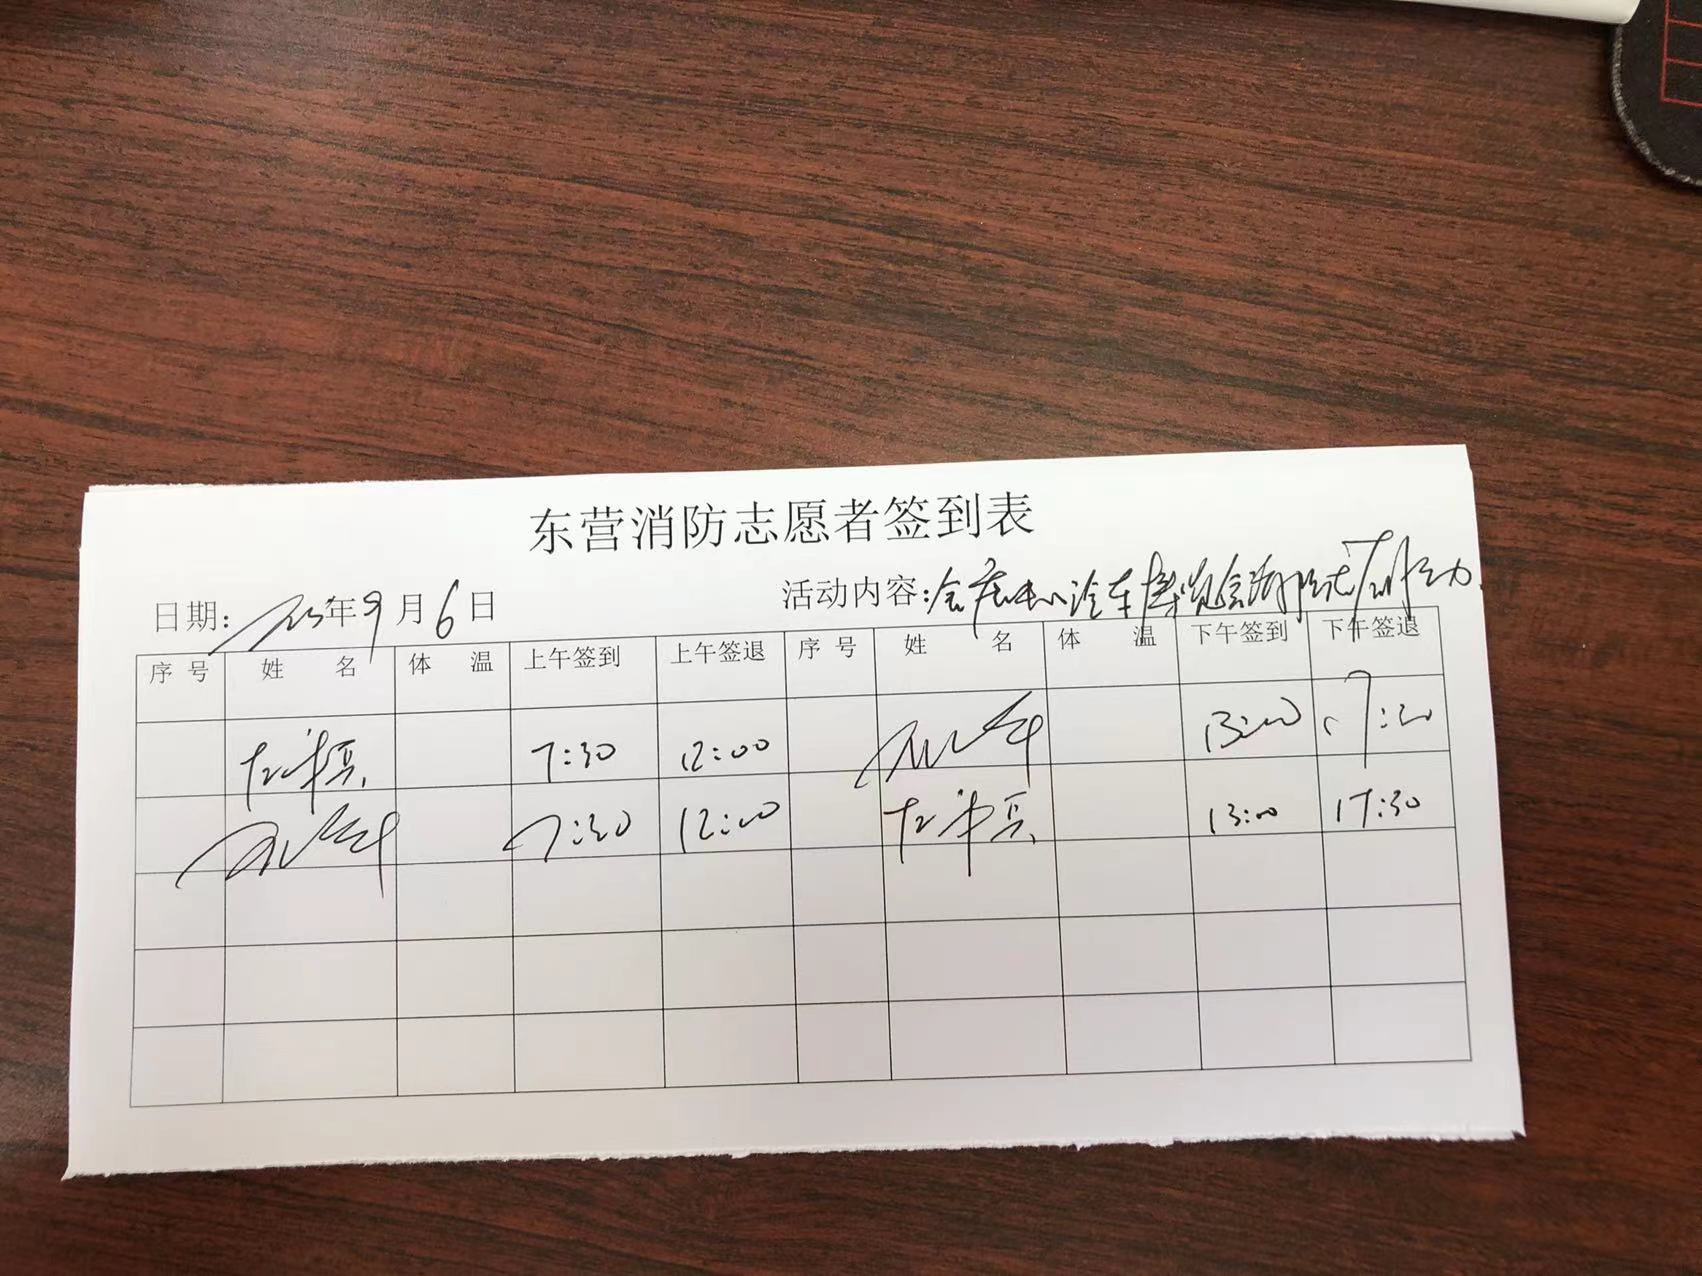 东营消防志愿者签到表
日期: 年9月6日 活动内容:会展中心汽车博览会消防志愿活动
序号 姓名 体温 上午签到 上午签退 序号 姓名 体温 下午签到 下午签退
7:30 12:00 13:00 17:30
7:30 12:00 13:00 17:30